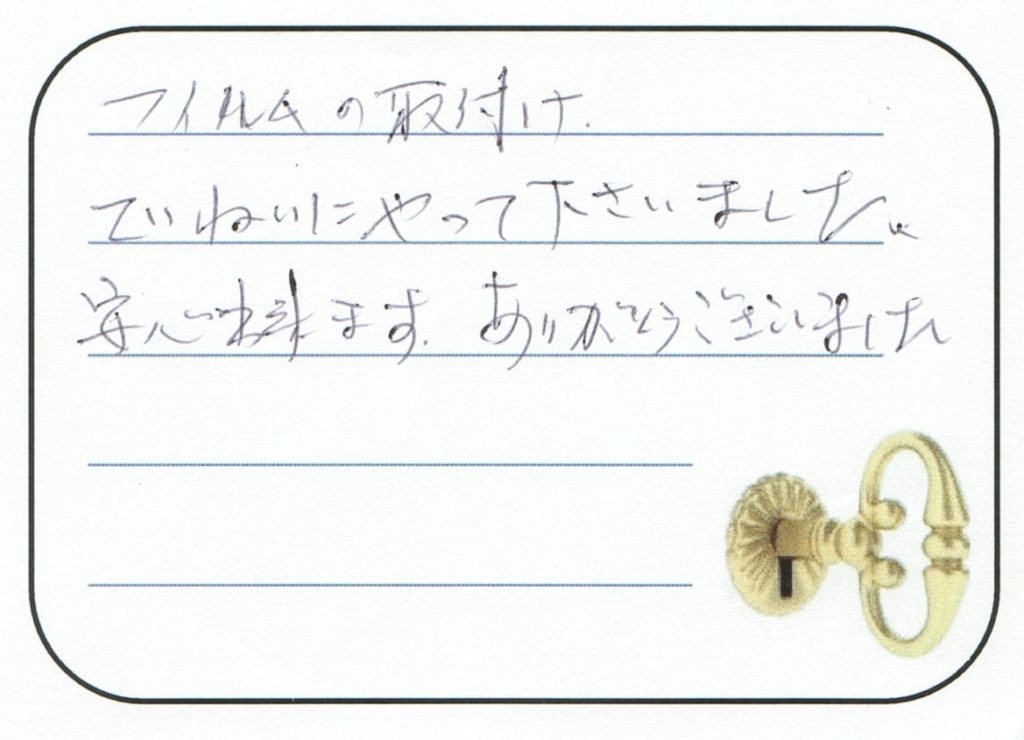 フイルムの取付け.
ていねいにやって下さいました。
安心出来ます. ありがとうございました